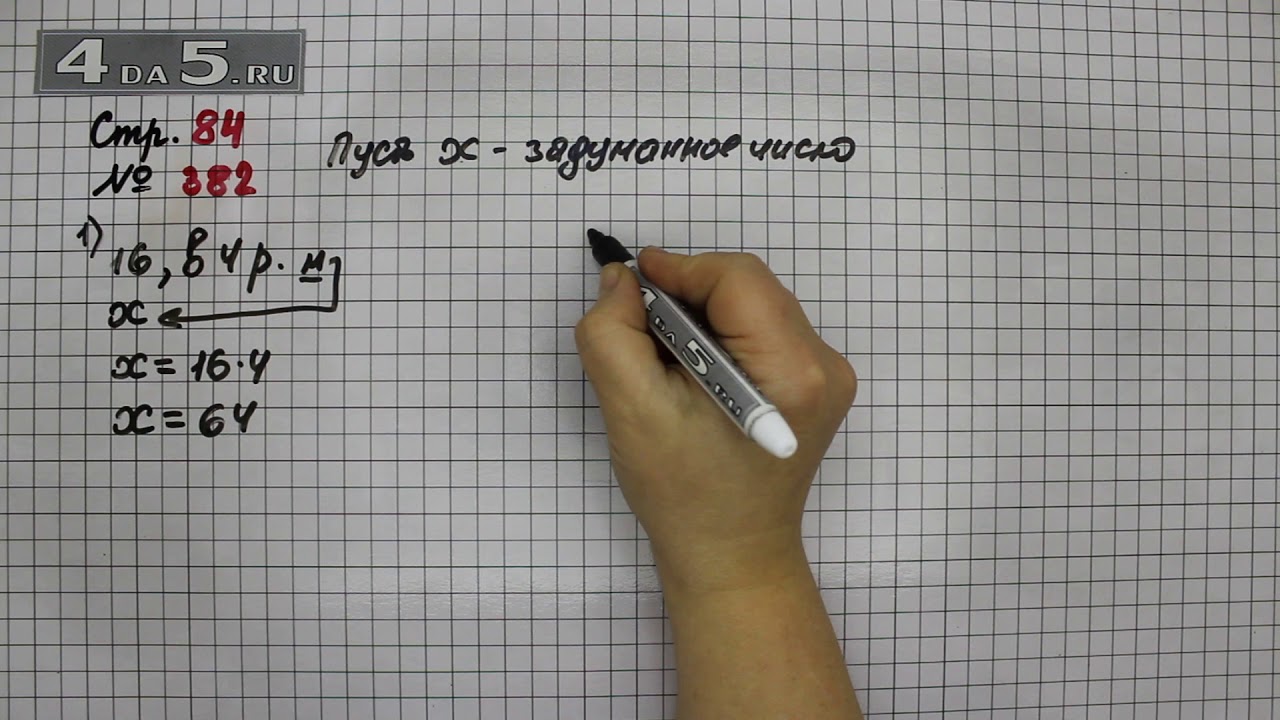 4DA5.RU
Стр. 84
№ 382
Пусть х - задуманное число
1)
16, в 4 р. м
х
х = 16·4
х = 64
4 DA 5.RU